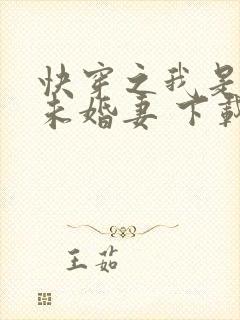 快穿之我是
未婚妻 下載
王茹